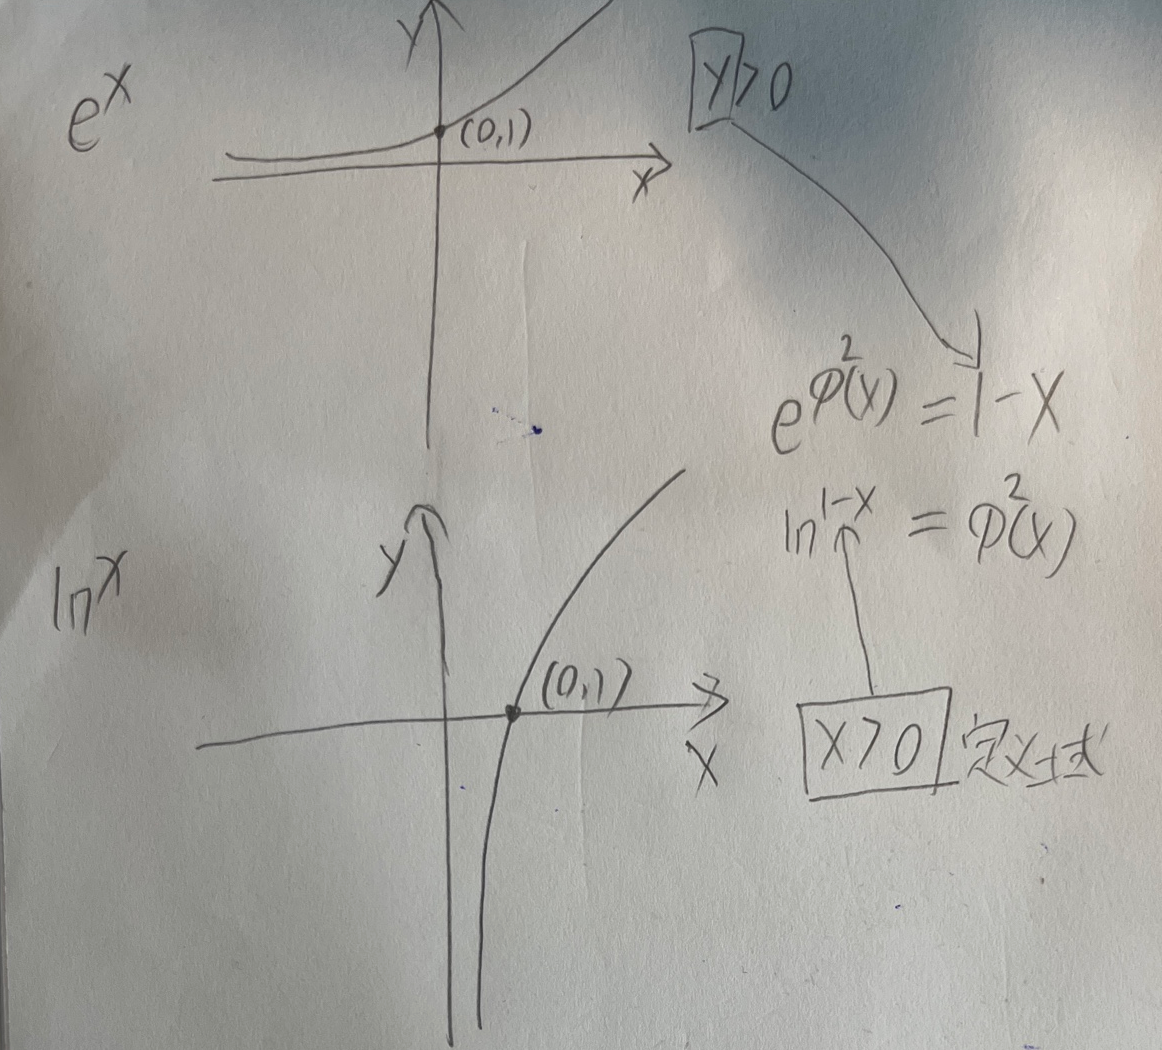 y
e^x
(0,1)
x
y>0
e^φ²(x) = 1-x
ln^1-x = φ²(x)
y
ln^x
(0,1)
x
x>0 定义域